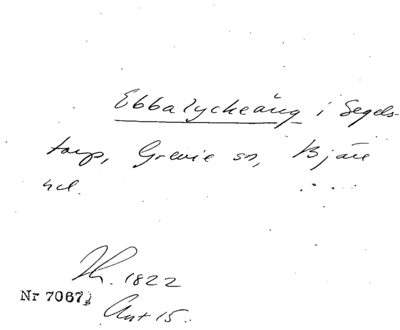 Ebbalyckeäng i Segels-
torp, Grevie sn, Bjäre
hd.
Th. 1822
Nr 7067
Akt 15.